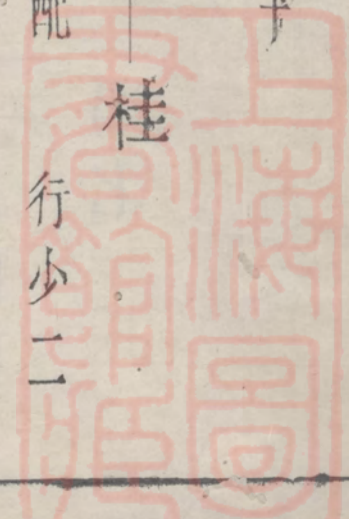 桂
配 行少二
上海圖
書館藏